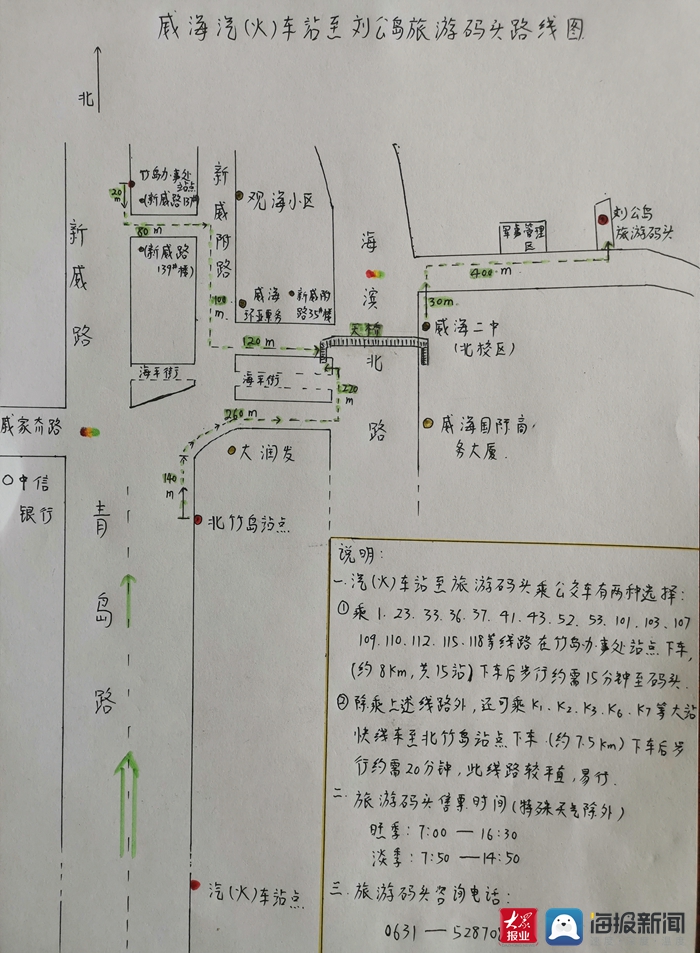 威海汽(火)车站至刘公岛旅游码头路线图
北
竹岛办事处
站点
(新威路137#)
20
m
80 m
(新威路
139#楼)
新威路
新威附路
观海小区
威海
新威附
路35#楼
100
m
120 m
海滨北路
天桥
军事管理
区
刘公岛
旅游码头
400 m
30m
威海二中
(北校区)
海军街
海军街
220
m
260 m
大润发
威海国际商
务大厦.
戚家夼路
中信
银行
140
m
北竹岛站点
青岛路
汽(火)车站点
说明:
一.汽(火)车站至旅游码头乘公交车有两种选择:
①乘1.23.33.36.37.41.43.52.53.101.103.107
109.110.112.115.118等线路在竹岛办事处站点下车,
(约8Km,共15站)下车后步行约需15分钟至码头.
②除乘上述线路外,还可乘K1.K2.K3.K6.K7等大站
快线车至北竹岛站点下车.(约7.5Km)下车后步
行约需20分钟,此线路较平直,易行.
二.旅游码头售票时间(特殊天气除外)
旺季:7:00—16:30
淡季:7:50—14:50
三.旅游码头咨询电话:
0631—52870
大众
报业
海报新闻